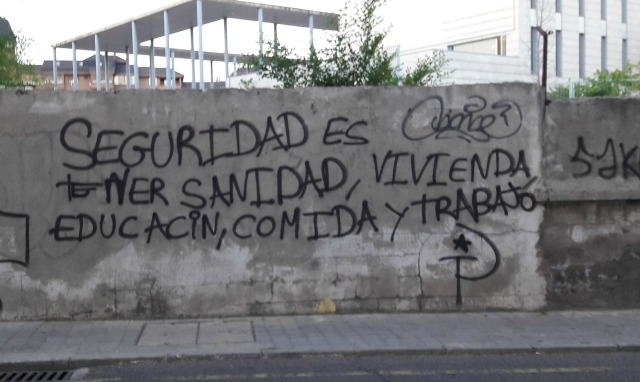 SEGURIDAD ES
tENER SANIDAD, VIVIENDA,
EDUCACIN, COMIDA y TRABAJO